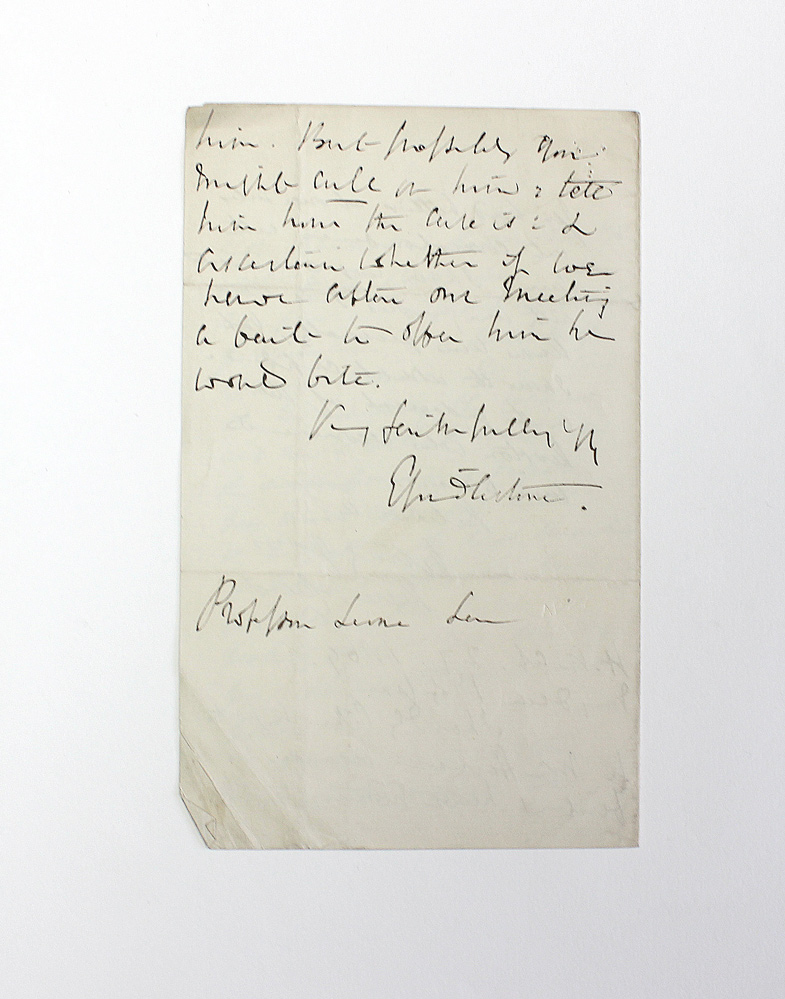 him. But possibly you
might call on him & tell
him how the case is : &
ascertain whether if we
have after our meeting
a bait to offer him he
would bite.
Very faithfully yrs
Professor Leone Levi